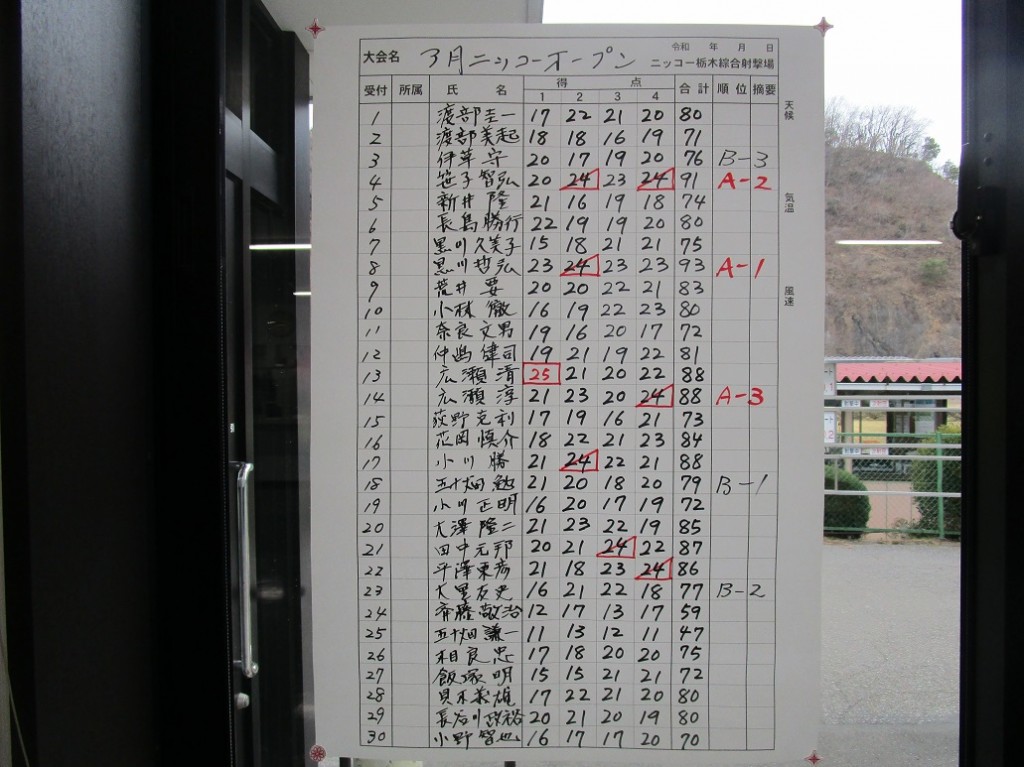 大会名 3月ニッコーオープン 令和 年 月 日
ニッコー栃木綜合射撃場
受付 所属 氏 名 得 点 合計 順位 摘要
1 2 3 4
1 渡部圭一 17 22 21 20 80
2 渡部美起 18 18 16 19 71
3 伊草 守 20 17 19 20 76 B-3
4 笹子智弘 20 24 23 24 91 A-2
5 新井 隆 21 16 19 18 74
6 長島勝行 22 19 19 20 80
7 黒川久美子 15 18 21 21 75
8 黒川哲弘 23 24 23 23 93 A-1
9 荒井 要 20 20 22 21 83
10 小林 徹 16 19 22 23 80
11 奈良文男 19 16 20 17 72
12 仲嶋健司 19 21 19 22 81
13 広瀬 清 25 21 20 22 88
14 広瀬 淳 21 23 20 24 88 A-3
15 荻野克利 17 19 16 21 73
16 花岡慎介 18 22 21 23 84
17 小川 勝 21 24 22 21 88
18 五十畑 勉 21 20 18 20 79 B-1
19 小川正明 16 20 17 19 72
20 大澤隆二 21 23 22 19 85
21 田中元邦 20 21 24 22 87
22 平澤東彦 21 18 23 24 86
23 大里友史 16 21 22 18 77 B-2
24 斉藤敬治 12 17 13 17 59
25 五十畑謙一 11 13 12 11 47
26 相良 忠 17 18 20 20 75
27 飯塚 明 15 15 21 21 72
28 貝木義雄 17 22 21 20 80
29 長谷川政裕 20 21 20 19 80
30 小野智也 16 17 17 20 70
天候
気温
風速
2